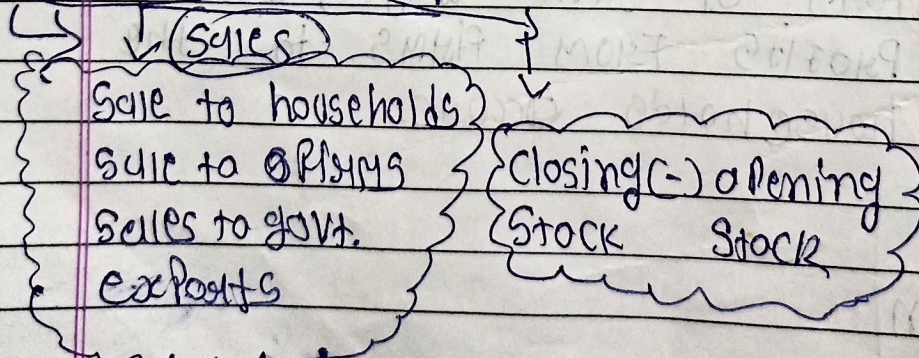 Sales
Sale to households
Sale to firms
Sales to govt.
exports
Closing (-) opening
Stock Stock